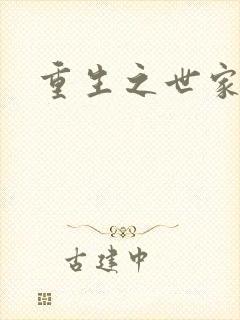 重生之世家
古建中